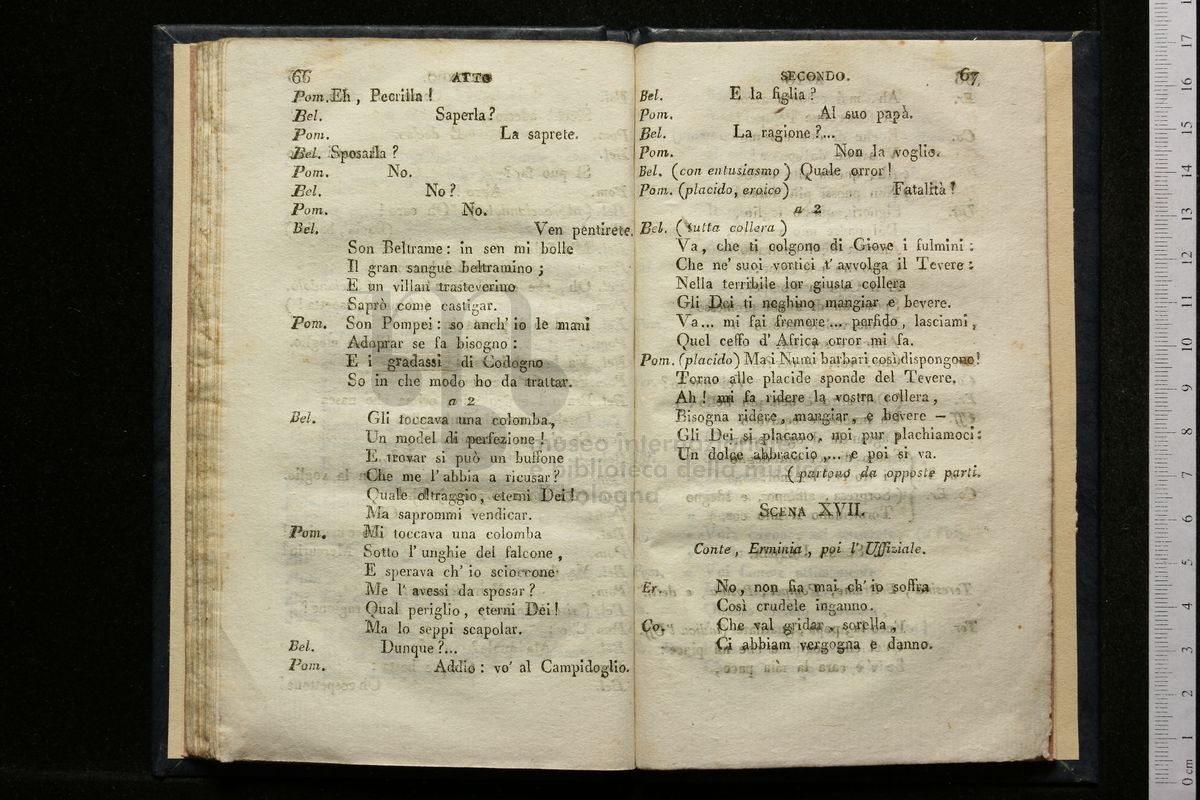 66 ATTO
Pom. Eh, Pecrilla!
Bel. Saperla?
Pom. La saprete.
Bel. Sposarla?
Pom. No.
Bel. No?
Pom. No.
Bel. Ven pentirete.
Son Beltrame: in sen mi bolle
Il gran sangue beltramino;
E un villan trasteverino
Saprò come castigar.
Pom. Son Pompei: so anch' io le mani
Adoprar se fa bisogno:
E i gradassi di Codogno
So in che modo ho da trattar.
a 2
Bel. Gli toccava una colomba,
Un model di perfezione!
E trovar si può un buffone
Che me l'abbia a ricusar?
Quale oltraggio, eterni Dei!
Ma saprommi vendicar.
Pom. Mi toccava una colomba
Sotto l'unghie del falcone,
E sperava ch' io scioccone
Me l'avessi da sposar?
Qual periglio, eterni Dei!
Ma lo seppi scapolar.
Bel. Dunque?...
Pom. Addio: vo' al Campidoglio.
SECONDO. 67
Bel. E la figlia?
Pom. Al suo papà.
Bel. La ragione?...
Pom. Non la voglio.
Bel. (con entusiasmo) Quale orror!
Pom. (placido, eroico) Fatalità!
a 2
Bel. (tutta collera)
Va, che ti colgono di Giove i fulmini:
Che ne' suoi vortici t'avvolga il Tevere:
Nella terribile lor giusta collera
Gli Dei ti neghino mangiar e bevere.
Va... mi fai fremere... perfido, lasciami,
Quel ceffo d'Africa orror mi fa.
Pom. (placido) Ma i Numi barbari così dispongono!
Torno alle placide sponde del Tevere.
Ah! mi fa ridere la vostra collera,
Bisogna ridere, mangiar, e bevere —
Gli Dei si placano, noi pur plachiamoci:
Un dolce abbraccio,... e poi si va.
(partono da opposte parti.
SCENA XVII.
Conte, Erminia, poi l'Uffiziale.
Er. No, non fia mai ch' io soffra
Così crudele inganno.
Co. Che val gridar, sorella,
Ci abbiam vergogna e danno.
museo internazionale
e biblioteca della musica
di bologna
0 cm 1 2 3 4 5 6 7 8 9 10 11 12 13 14 15 16 17